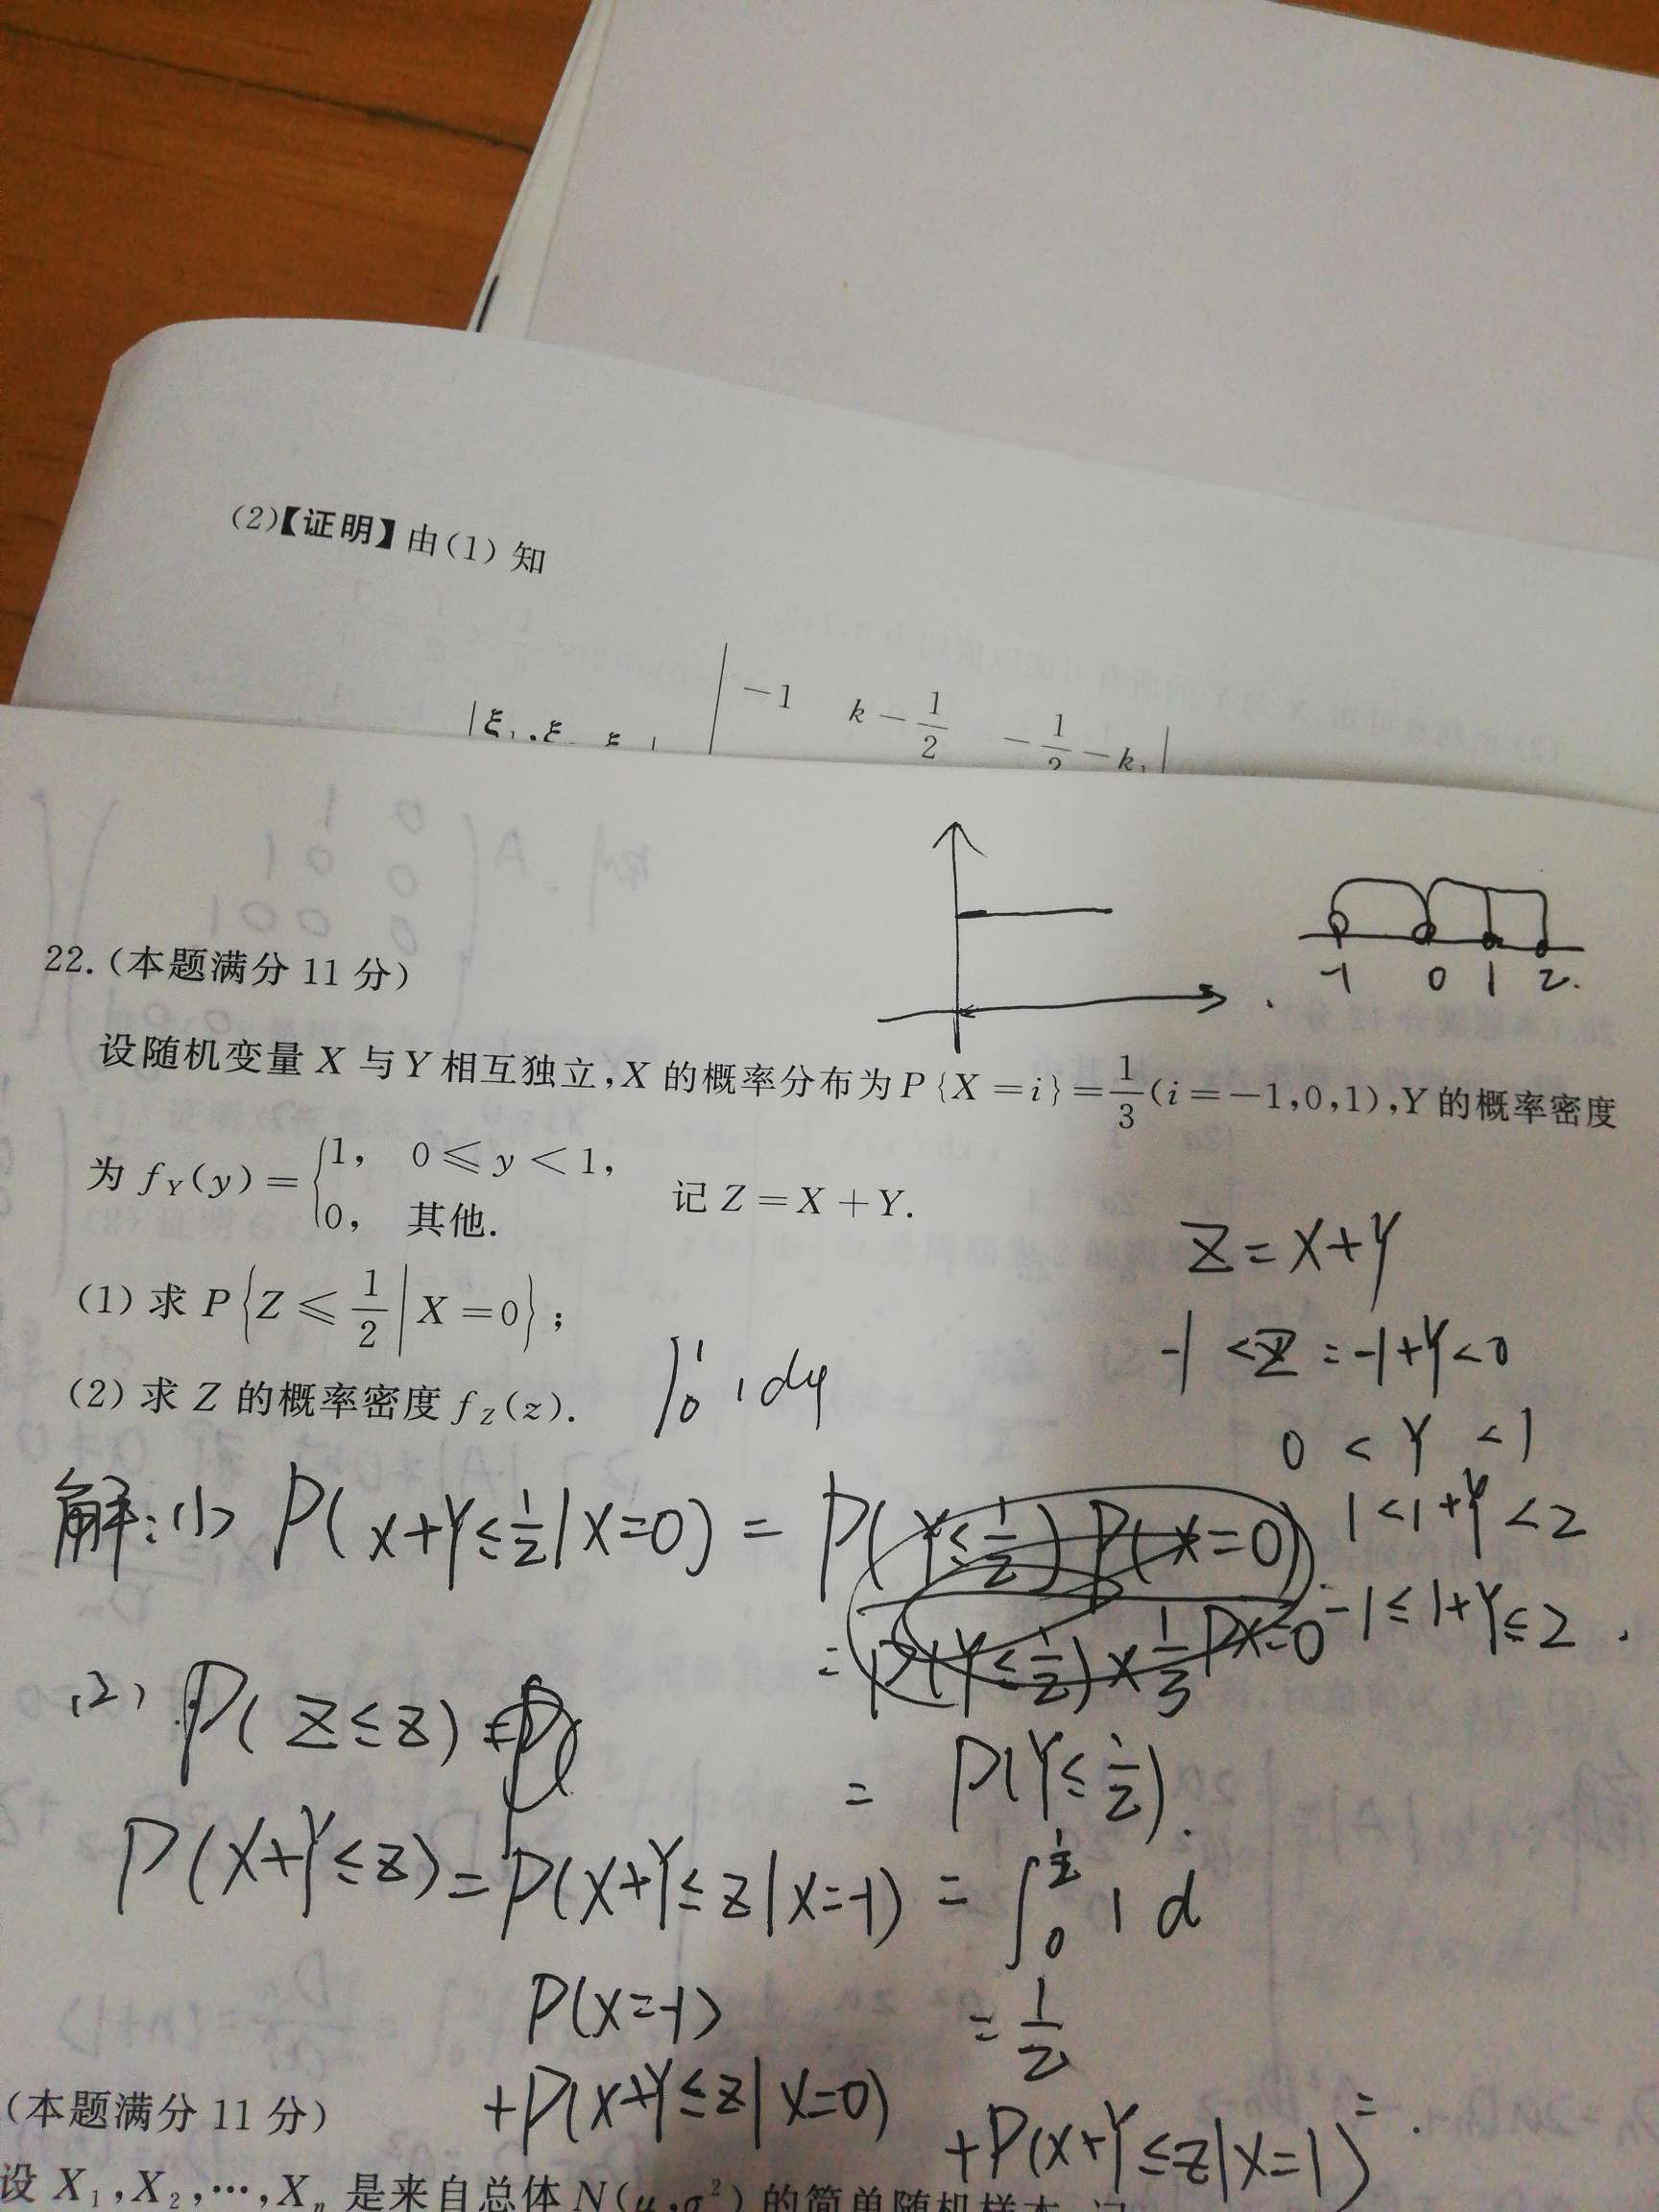 (2)【证明】由(1) 知
-1 k-1/2 -1/2-k
-1 0 1 2.
22.(本题满分 11 分)
设随机变量 X 与 Y 相互独立,X 的概率分布为 P{X=i}=1/3(i=-1,0,1),Y 的概率密度
为 f_Y(y)={1, 0≤y<1, 0, 其他. 记 Z=X+Y.
(1) 求 P{Z≤1/2|X=0};
(2) 求 Z 的概率密度 f_Z(z).
∫₀¹ 1 dy
Z=X+Y
-1<Z=-1+Y<0
0<Y<1
1<1+Y<2
-1≤1+Y≤2.
解:(1) P(X+Y≤1/2|X=0)=P(Y≤1/2)P(X=0)
=P(Y≤1/2)×1/3 PX=0
=P(Y≤1/2).
=∫₀^{1/2} 1 d
=1/2
(2) P(Z≤z)=P(
P(X+Y≤z)=P(X+Y≤z|X=-1)
P(X=-1)
+P(X+Y≤z|X=0)
+P(X+Y≤z|X=1)=
(本题满分 11 分)
设 X₁,X₂,…,Xₙ 是来自总体 N(μ,σ²) 的简单随机样本